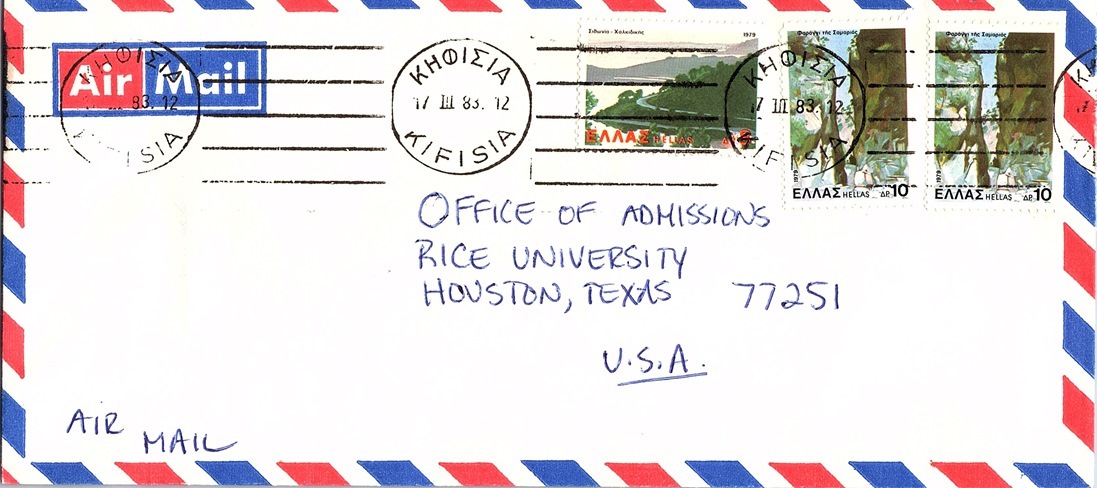 Air Mail
ΚΗΦΙΣΙΑ
17 III 83. 12
KIFISIA
ΚΗΦΙΣΙΑ
17 III 83. 12
KIFISIA
Σιθωνία - Χαλκιδικής 1979
ΕΛΛΑΣ HELLAS
ΚΗΦΙΣΙΑ
7 III 83. 12
KIFISIA
Φαράγγι τῆς Σαμαριᾶς
1979
ΕΛΛΑΣ HELLAS ΔΡ 10
Φαράγγι τῆς Σαμαριᾶς
1979
ΕΛΛΑΣ HELLAS ΔΡ 10
OFFICE OF ADMISSIONS
RICE UNIVERSITY
HOUSTON, TEXAS 77251
U.S.A.
AIR MAIL